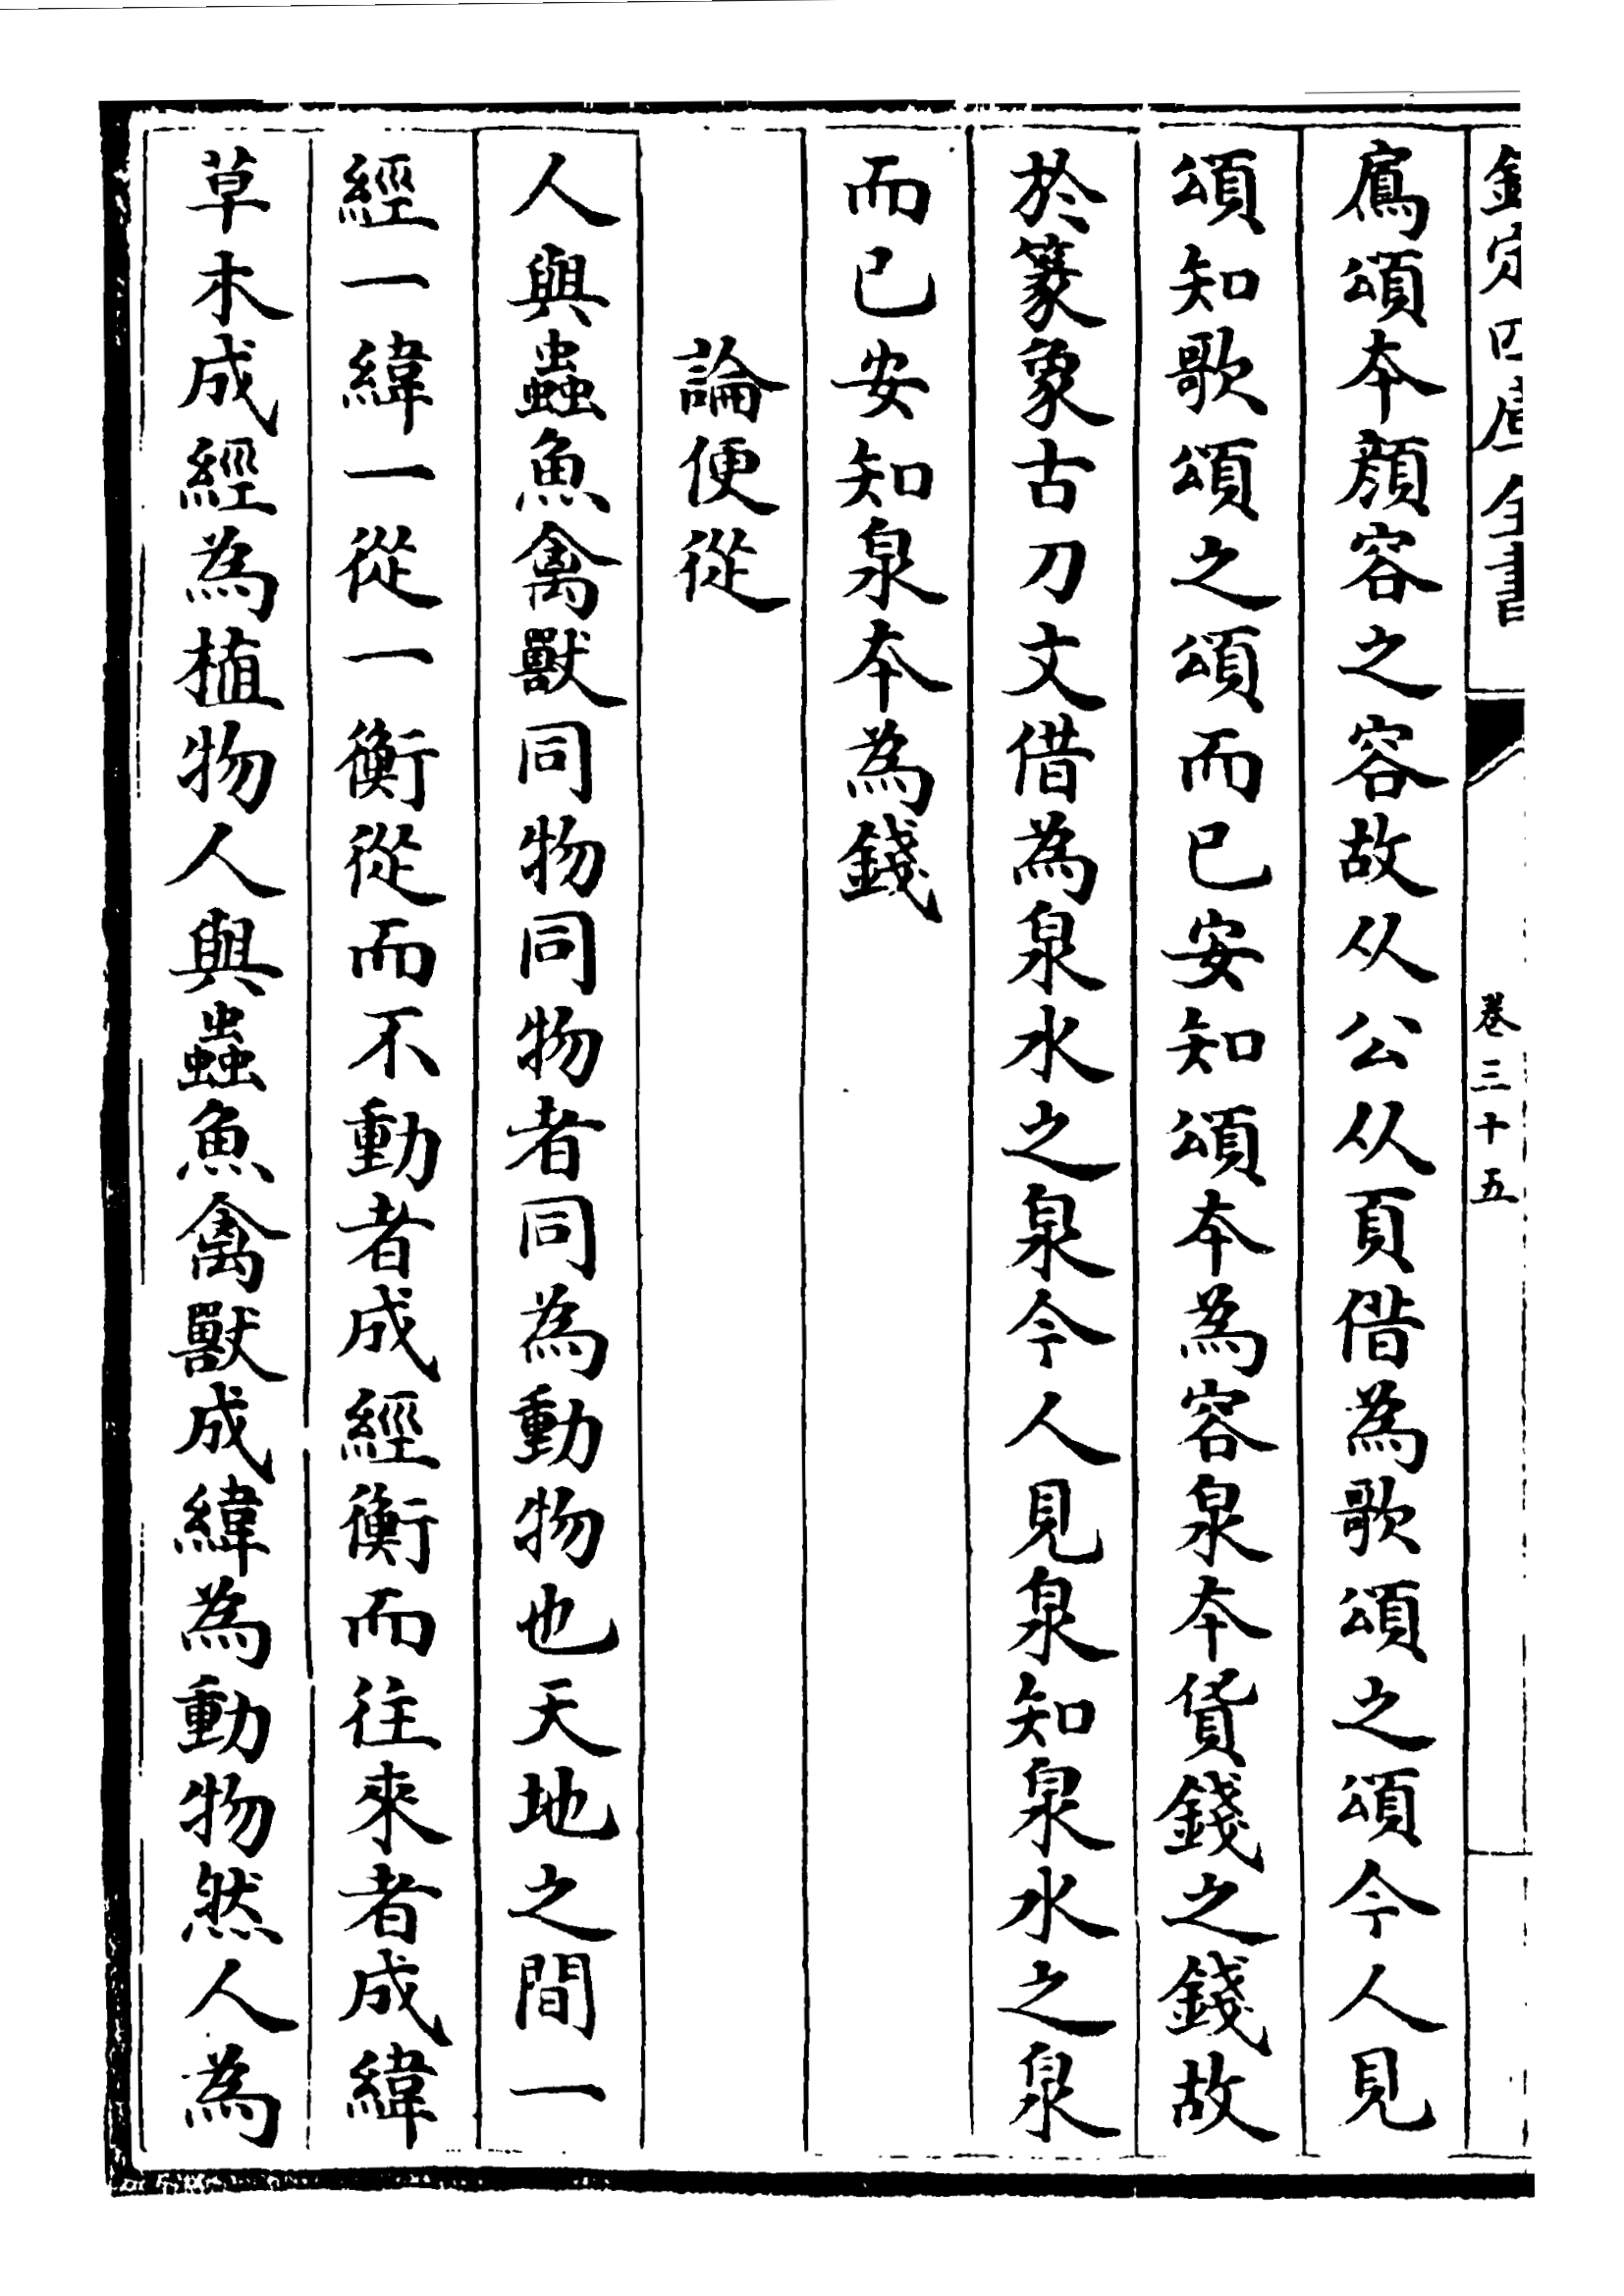 欽定四庫全書
卷三十五
鳫頌本顔容之容故从公从頁借為歌頌之頌今人見
頌知歌頌之頌而已安知頌本為容泉本貨錢之錢故
於篆象古刀文借為泉水之泉今人見泉知泉水之泉
而已安知泉本為錢
論便從
人與蟲魚禽獸同物同物者同為動物也天地之間一
經一緯一從一衡從而不動者成經衡而往來者成緯
草木成經為植物人與蟲魚禽獸成緯為動物然人為